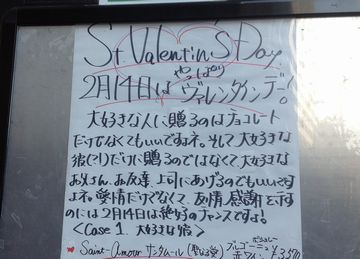 St Valentin's Day.
やっぱり
2月14日は ヴァレンタインデー!
大好きな人に贈るのはチョコレート
だけでなくてもいいですよネ。そして大好きな
彼(ヒト)だけに贈るのではなくて大好きな
お父さん、お友達、上司にあげるのでもいいです
よネ。愛情だけでなくて、友情、感謝を示す
のには2月14日は絶好のチャンスですよ!
<Case 1. 大好きな彼>
Saint-Amour サンタムール (聖なる愛)
ブルゴーニュ
赤ワイン ¥3,570